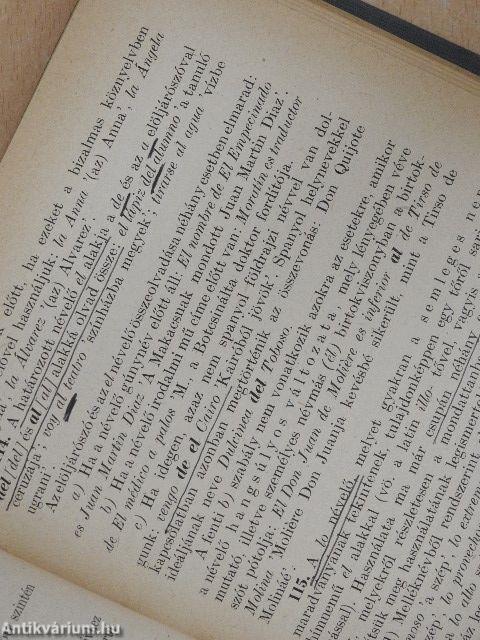 előtt, ha ezeket a bizalmas köznyelvben
névelővel használjuk: la Anna ‚(az) Anna', la Ángela
la Álvarez ‚(az) Álvarez'.
114. A határozott névelő el alakja a de és az a elöljárószóval
del (del) és al (al) alakká olvad össze: el lápiz del alumno ‚a tanuló
ceruzája', voy al teatro ‚színházba megyek'; tirarse al agua ‚vízbe
ugrani'.
Az elöljárószó és az el névelő összeolvadása néhány esetben elmarad:
a) Ha a névelő gúnynév előtt áll: El nombre de El Empecinado
es Juan Martín Díaz ‚A Makacsnak mondott Juan Martín Díaz';
b) Ha a névelő irodalmi mű címe előtt van: Moratín es traductor
de El médico a palos ‚M. a Botcsinálta doktor fordítója.
c) Ha idegen, azaz nem spanyol földrajzi névvel van dol-
gunk: vengo de el Cairo ‚Kairóból jövök'. Spanyol helynevekkel
kapcsolatban azonban megtörténik az összevonás: Don Quijote
ideáljának neve Dulcinea del Toboso.
A fenti b) szabály nem vonatkozik azokra az esetekre, amikor
a névelő hangsúlyos változata, mely lényegében véve
mutató, illetve személyes névmás (él) birtokviszonyban a birtok-
szót pótolja: El Don Juan de Molière es inferior al de Tirso de
Molina ‚Molière Don Juanja kevésbé sikerült, mint a Tirso de
Molináé'.
115. A lo névelő, melyet gyakran a semleges nem
maradványának tekintenek, tulajdonképpen egy tőről sarj
hímnemű el alakkal (vö. a latin illo. tővel, vagyis
Használata ma már csupán néhány
melyekről részletesen a mondottak
használatának legismertebb
a) Melléknévből rendszerint
‚a szép', lo extremo
lo provecho
szintén